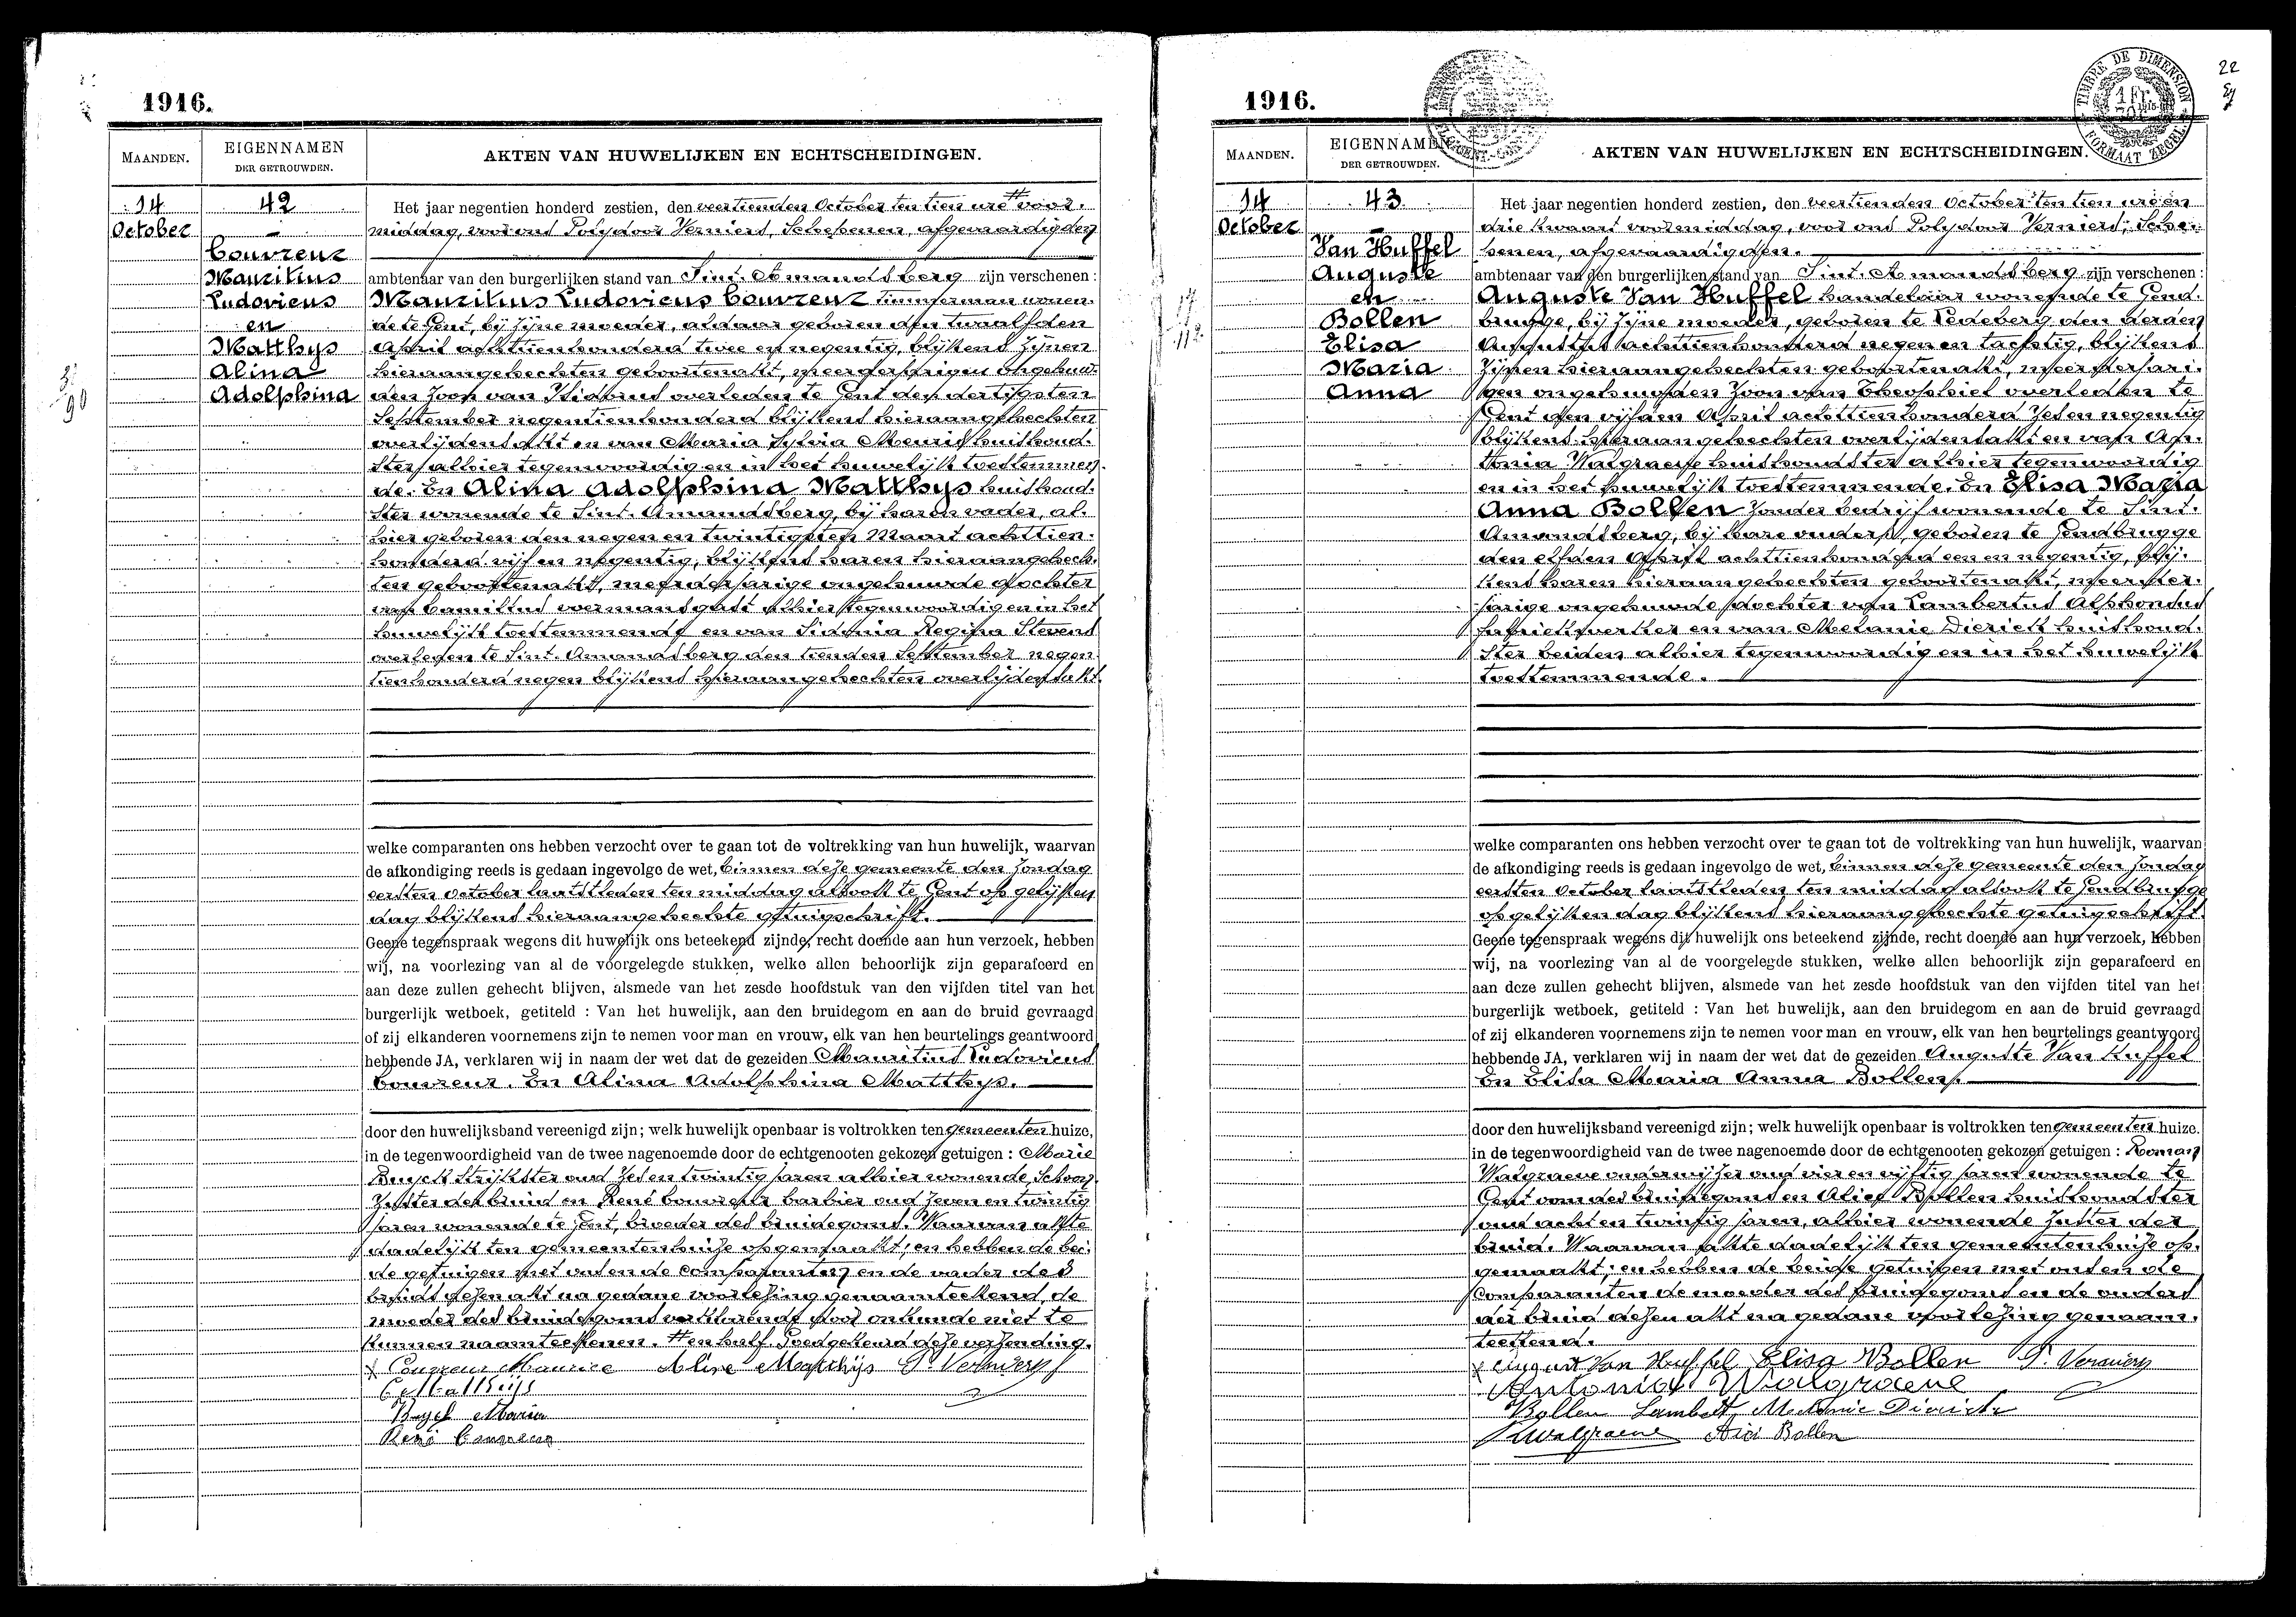 1916.
MAANDEN.
EIGENNAMEN
DER GETROUWDEN.
AKTEN VAN HUWELIJKEN EN ECHTSCHEIDINGEN.
14
October
42
Couvreur
Mauritius
Ludovicus
en
Matthys
Alina
Adolphina
Het jaar negentien honderd zestien, den veertienden October ten tien ure # voor-
middag, voor ons Polydoor Verniers, Schepenen, afgevaardigden
ambtenaar van den burgerlijken stand van Sint-Amandsberg zijn verschenen:
Mauritius Ludovicus Couvreur timmerman wonen-
de te Gent, bij zijne moeder, aldaar geboren den twaalfden
April achttienhonderd twee en negentig, blijkens zijnen
hieraangehechten geboorteakt, meerderjarigen ongehuw-
den zoon van Isidorus overleden te Gent den dertigsten
September negentienhonderd blijkens hieraangehechten
overlijdensakt en van Maria Sylvia Meuris huishoud-
ster alhier tegenwoordig en in het huwelijk toestemmen-
de. En Alina Adolphina Matthys huishoud-
ster wonende te Sint-Amandsberg, bij haren vader, al-
hier geboren den negen en twintigsten Maart achttien-
honderd vijf en negentig, blijkens haren hieraangehech-
ten geboorteakt, meerderjarige ongehuwde dochter
van Camillus alhier tegenwoordig en in het
huwelijk toestemmende en van Sidonia Regina Stevens
overleden te Sint-Amandsberg den tienden September negen-
tienhonderd negen blijkens hieraangehechten overlijdensakt.
welke comparanten ons hebben verzocht over te gaan tot de voltrekking van hun huwelijk, waarvan
de afkondiging reeds is gedaan ingevolge de wet, binnen deze gemeente den Zondag
eersten October laatstleden ten middag alsook te Gent op gelijken
dag blijkens hieraangehechte getuigschrift.
Geene tegenspraak wegens dit huwelijk ons beteekend zijnde, recht doende aan hun verzoek, hebben
wij, na voorlezing van al de voorgelegde stukken, welke allen behoorlijk zijn geparafeerd en
aan deze zullen gehecht blijven, alsmede van het zesde hoofdstuk van den vijfden titel van het
burgerlijk wetboek, getiteld : Van het huwelijk, aan den bruidegom en aan de bruid gevraagd
of zij elkanderen voornemens zijn te nemen voor man en vrouw, elk van hen beurtelings geantwoord
hebbende JA, verklaren wij in naam der wet dat de gezeiden Mauritius Ludovicus
Couvreur. En Alina Adolphina Matthys.
door den huwelijksband vereenigd zijn; welk huwelijk openbaar is voltrokken ten gemeenten huize,
in de tegenwoordigheid van de twee nagenoemde door de echtgenooten gekozen getuigen : Marie
Buysck Strijkster oud zes en twintig jaren alhier wonende, Schoon-
zuster der bruid en René Couvreur barbier oud zeven en twintig
jaren wonende te Gent, broeder des bruidegoms. Waarvan akte
dadelijk ten gemeentenhuize opgemaakt; en hebben de bei-
de getuigen met ons en de comparanten en de vader des
bruids dezen akt na gedane voorlezing genaamteekend, de
moeder des bruidegoms verklarende door onkunde niet te
kunnen naamteekenen. # en half. Goedgekeurd deze verzending.
Couvreur Maurice Aline Matthijs P. Verniers
C. Matthijs
Buysck Maria
René Couvreur
1916.
TIMBRE DE DIMENSION
FORMAAT ZEGEL
1 Fr.
22
MAANDEN.
EIGENNAMEN
DER GETROUWDEN.
AKTEN VAN HUWELIJKEN EN ECHTSCHEIDINGEN.
14
October
43
Van Huffel
Auguste
en
Bollen
Elisa
Maria
Anna
Het jaar negentien honderd zestien, den veertienden October ten tien ure en
drie kwaart voormiddag, voor ons Polydoor Verniers, Sche-
penen, afgevaardigden.
ambtenaar van den burgerlijken stand van Sint-Amandsberg zijn verschenen:
Auguste Van Huffel handelaar wonende te Gend-
brugge, bij zijne moeder, geboren te Ledeberg den derden
Augustus achttienhonderd negen en tachtig, blijkens
zijnen hieraangehechten geboorteakt, meerderjari-
gen ongehuwden zoon van Theophiel overleden te
Gent den vijfden April achttienhonderd zes en negentig
blijkens hieraangehechten overlijdensakt en van An-
tonia Walgraeve huishoudster alhier tegenwoordig
en in het huwelijk toestemmende. En Elisa Maria
Anna Bollen zonder bedrijf wonende te Sint-
Amandsberg, bij hare ouders, geboren te Gendbrugge
den elfden April achttienhonderd een en negentig, blij-
kens haren hieraangehechten geboorteakt, meerder-
jarige ongehuwde dochter van Lambertus Alphonsus
fabriekwerker en van Melanie Dierick huishoud-
ster beiden alhier tegenwoordig en in het huwelijk
toestemmende.
welke comparanten ons hebben verzocht over te gaan tot de voltrekking van hun huwelijk, waarvan
de afkondiging reeds is gedaan ingevolge de wet, binnen deze gemeente den Zondag
eersten October laatstleden ten middag alsook te Gendbrugge
op gelijken dag blijkens hieraangehechte getuigschrift.
Geene tegenspraak wegens dit huwelijk ons beteekend zijnde, recht doende aan hun verzoek, hebben
wij, na voorlezing van al de voorgelegde stukken, welke allen behoorlijk zijn geparafeerd en
aan deze zullen gehecht blijven, alsmede van het zesde hoofdstuk van den vijfden titel van het
burgerlijk wetboek, getiteld : Van het huwelijk, aan den bruidegom en aan de bruid gevraagd
of zij elkanderen voornemens zijn te nemen voor man en vrouw, elk van hen beurtelings geantwoord
hebbende JA, verklaren wij in naam der wet dat de gezeiden Auguste Van Huffel
En Elisa Maria Anna Bollen.
door den huwelijksband vereenigd zijn; welk huwelijk openbaar is voltrokken ten gemeenten huize.
in de tegenwoordigheid van de twee nagenoemde door de echtgenooten gekozen getuigen : Roman
Walgraeve onderwijzer oud vier en vijftig jaren wonende te
Gent oom des bruidegoms en Alice Bollen huishoudster
oud acht en twintig jaren, alhier wonende zuster der
bruid. Waarvan akte dadelijk ten gemeentenhuize op-
gemaakt; en hebben de beide getuigen met ons en de
comparanten de moeder des bruidegoms en de ouders
der bruid dezen akt na gedane voorlezing genaam-
teekend.
August Van Huffel Elisa Bollen P. Verniers
Antonia Walgraeve
Bollen Lambert Melanie Dierickx
Walgraeve Alici Bollen